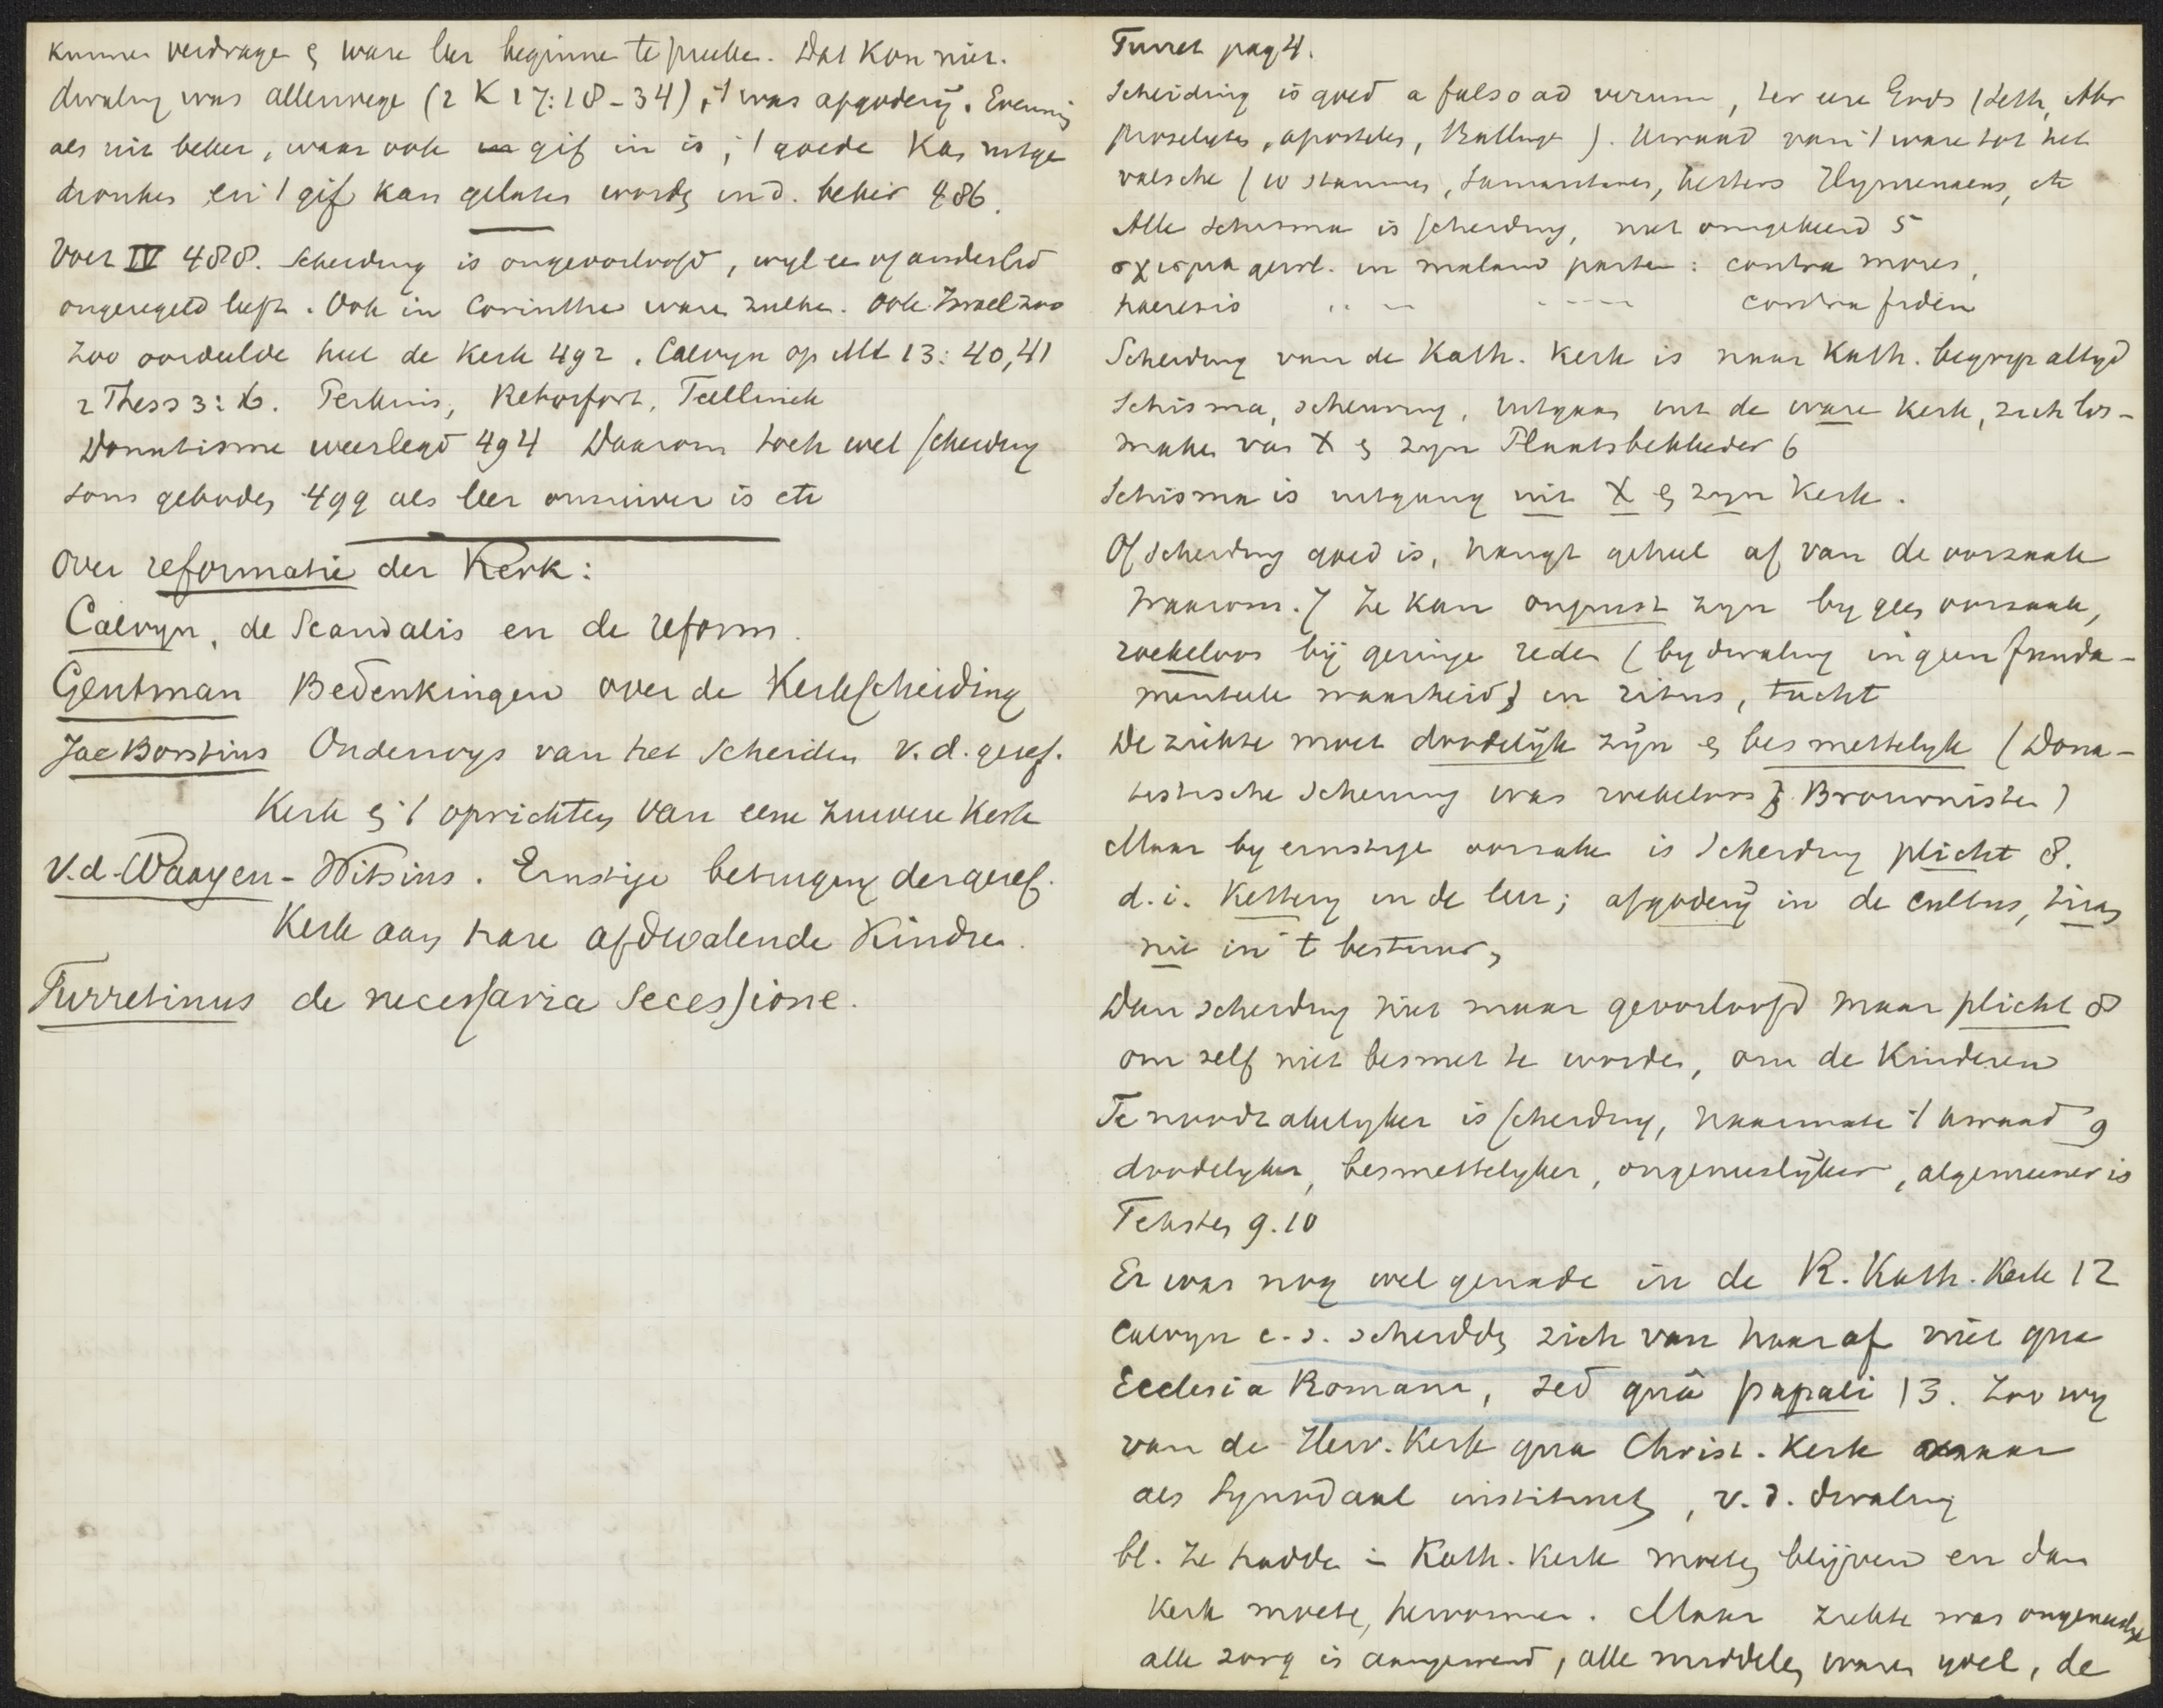 kunnen verdragen & ware leer beginnen te preeken. Dat kon niet.
dwaling was allerwege (2 K 17:18-34), 't was afgodery. Evenmin
als uit beker, waar ook gif in is, 't goede kan uitge
dronken en 't gif kan gelaten worden in d. beker 486.
Voet IV 488. Scheiding is ongeoorloofd, wyl een of ander lid
ongeregeld leeft. Ook in Corinthe waren zulke. Ook Israel zoo
Zoo oordeelde heel de Kerk 492. Calvyn op Mt 13:40,41
2 Thess 3:6. Perkins, Retorfort, Teellinck
Donatisme weerlegd 494 Daarom toch wel scheiding
soms geboden 499 als leer onzuiver is etc
Over reformatie der Kerk:
Calvyn, de Scandalis en de reform.
Gentman Bedenkingen over de Kerkscheiding
Jac Borstius Onderwys van het Scheiden v.d. geref.
Kerk & 't oprichten van eene zuivere Kerk
v.d. Waayen-Witsius. Ernstige betuiging der geref.
Kerk aan hare afdwalende Kindren.
Turretinus de necessaria Secessione.
Turret pag 4.
Scheiding is goed a falso ad verum, ter eere Gods (Seth, Abr
Proselyten, apostelen, Ballinge). Kwaad van 't ware tot het
valsche (10 stammen, Samaritanen, Hymenaeus, etc
Alle Schisma is scheiding, niet omgekeerd 5
σχισμα gewl. in malam partem: contra mores,
haeresis " — - - - - contra fidem
Scheiding van de Kath. Kerk is naar Kath. begryp altyd
Schisma, scheuring, uitgaan uit de ware Kerk, zich los-
maken van X & zyn Plaatsbekleder 6
Schisma is uitgang uit X & zyn Kerk.
Of scheiding goed is, hangt geheel af van de oorzaak
waarom. 7 Ze kan onjuist zyn by geen oorzaak,
roekeloos bij geringe reden (by dwaling in geen funda-
menteele waarheid) in ritus, tucht
De ziekte moet doodelijk zijn & besmettelyk (Dona-
tistische Scheuring was roekeloos & Brownisten)
Maar by ernstige oorzaken is Scheiding plicht 8.
d.i. Kettery in de leer; afgodery in de cultus, tiran
nie in 't bestuur,
Dan scheiding niet maar geoorloofd maar plicht 8
om zelf niet besmet te worden, om de Kinderen
Te noodzakelyker is scheiding, naarmate 't kwaad 9
doodelyker, besmettelyker, ongeneeslijker, algemeener is
Teksten 9.10
Er was nog wel genade in de R. Kath. Kerk 12
Calvyn c.s. scheidden zich van haar af niet qua
Ecclesia Romana, sed quâ papali 13. Zoo wy
van de Herv. Kerk qua Christ. Kerk maar
als Synodaal instituut, v.d. dwaling
bl. Ze hadden in Kath. Kerk moeten blijven en dan
Kerk moeten hervormen. Maar ziekte was ongeneeslyk
alle zorg is aangewend, alle middelen waren ydel, de